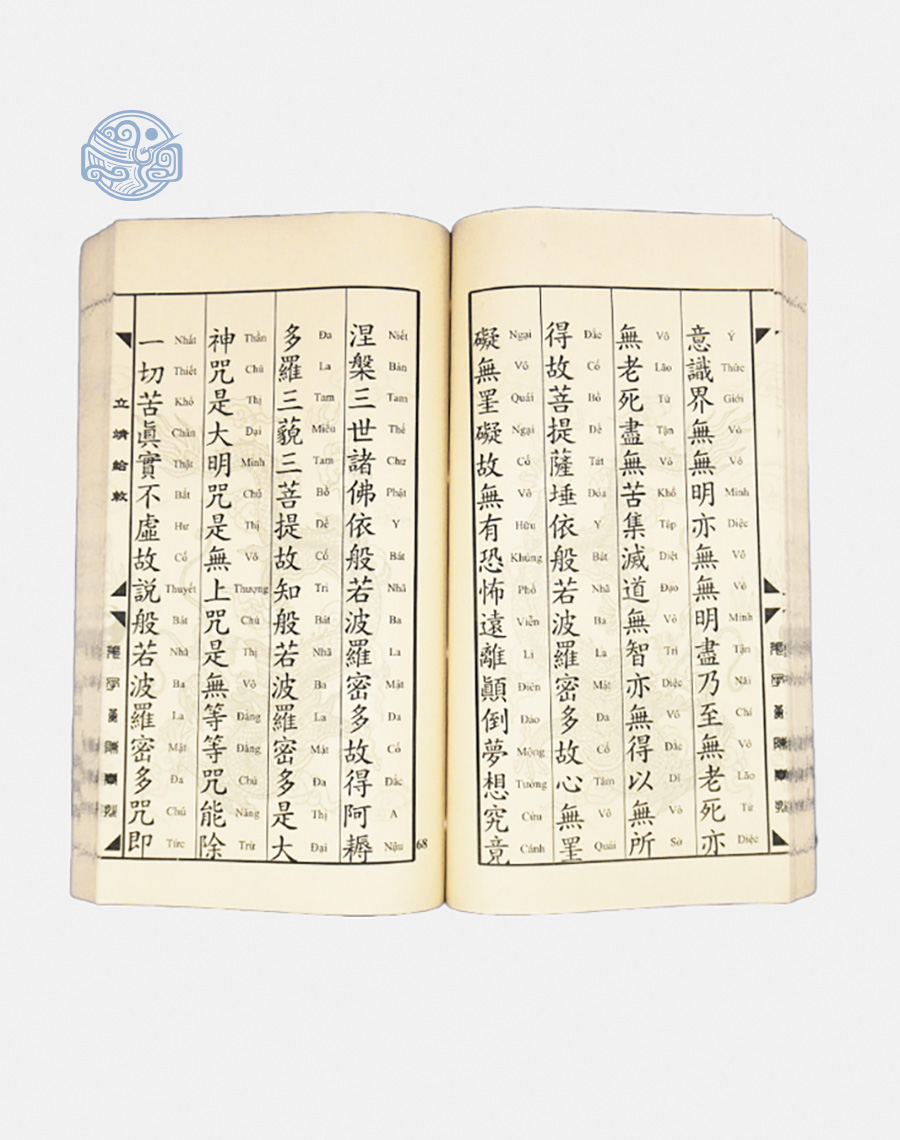 意識界無無明亦無無明盡乃至無老死亦
Ý Thức Giới Vô Vô Minh Diệc Vô Vô Minh Tận Nãi Chí Vô Lão Tử Diệc
無老死盡無苦集滅道無智亦無得以無所
Vô Lão Tử Tận Vô Khổ Tập Diệt Đạo Vô Trí Diệc Vô Đắc Dĩ Vô Sở
得故菩提薩埵依般若波羅密多故心無罣
Đắc Cố Bồ Đề Tát Đóa Y Bát Nhã Ba La Mật Đa Cố Tâm Vô Quái
礙無罣礙故無有恐怖遠離顛倒夢想究竟
Ngại Vô Quái Ngại Cố Vô Hữu Khủng Phố Viễn Li Điên Đảo Mộng Tưởng Cứu Cánh
涅槃三世諸佛依般若波羅密多故得阿耨
Niết Bàn Tam Thế Chư Phật Y Bát Nhã Ba La Mật Đa Cố Đắc A Nậu
68
多羅三藐三菩提故知般若波羅密多是大
Đa La Tam Miểu Tam Bồ Đề Cố Tri Bát Nhã Ba La Mật Đa Thị Đại
神咒是大明咒是無上咒是無等等咒能除
Thần Chú Thị Đại Minh Chú Thị Vô Thượng Chú Thị Vô Đẳng Đẳng Chú Năng Trừ
一切苦眞實不虛故説般若波羅密多咒即
Nhất Thiết Khổ Chân Thật Bất Hư Cố Thuyết Bát Nhã Ba La Mật Đa Chú Tức